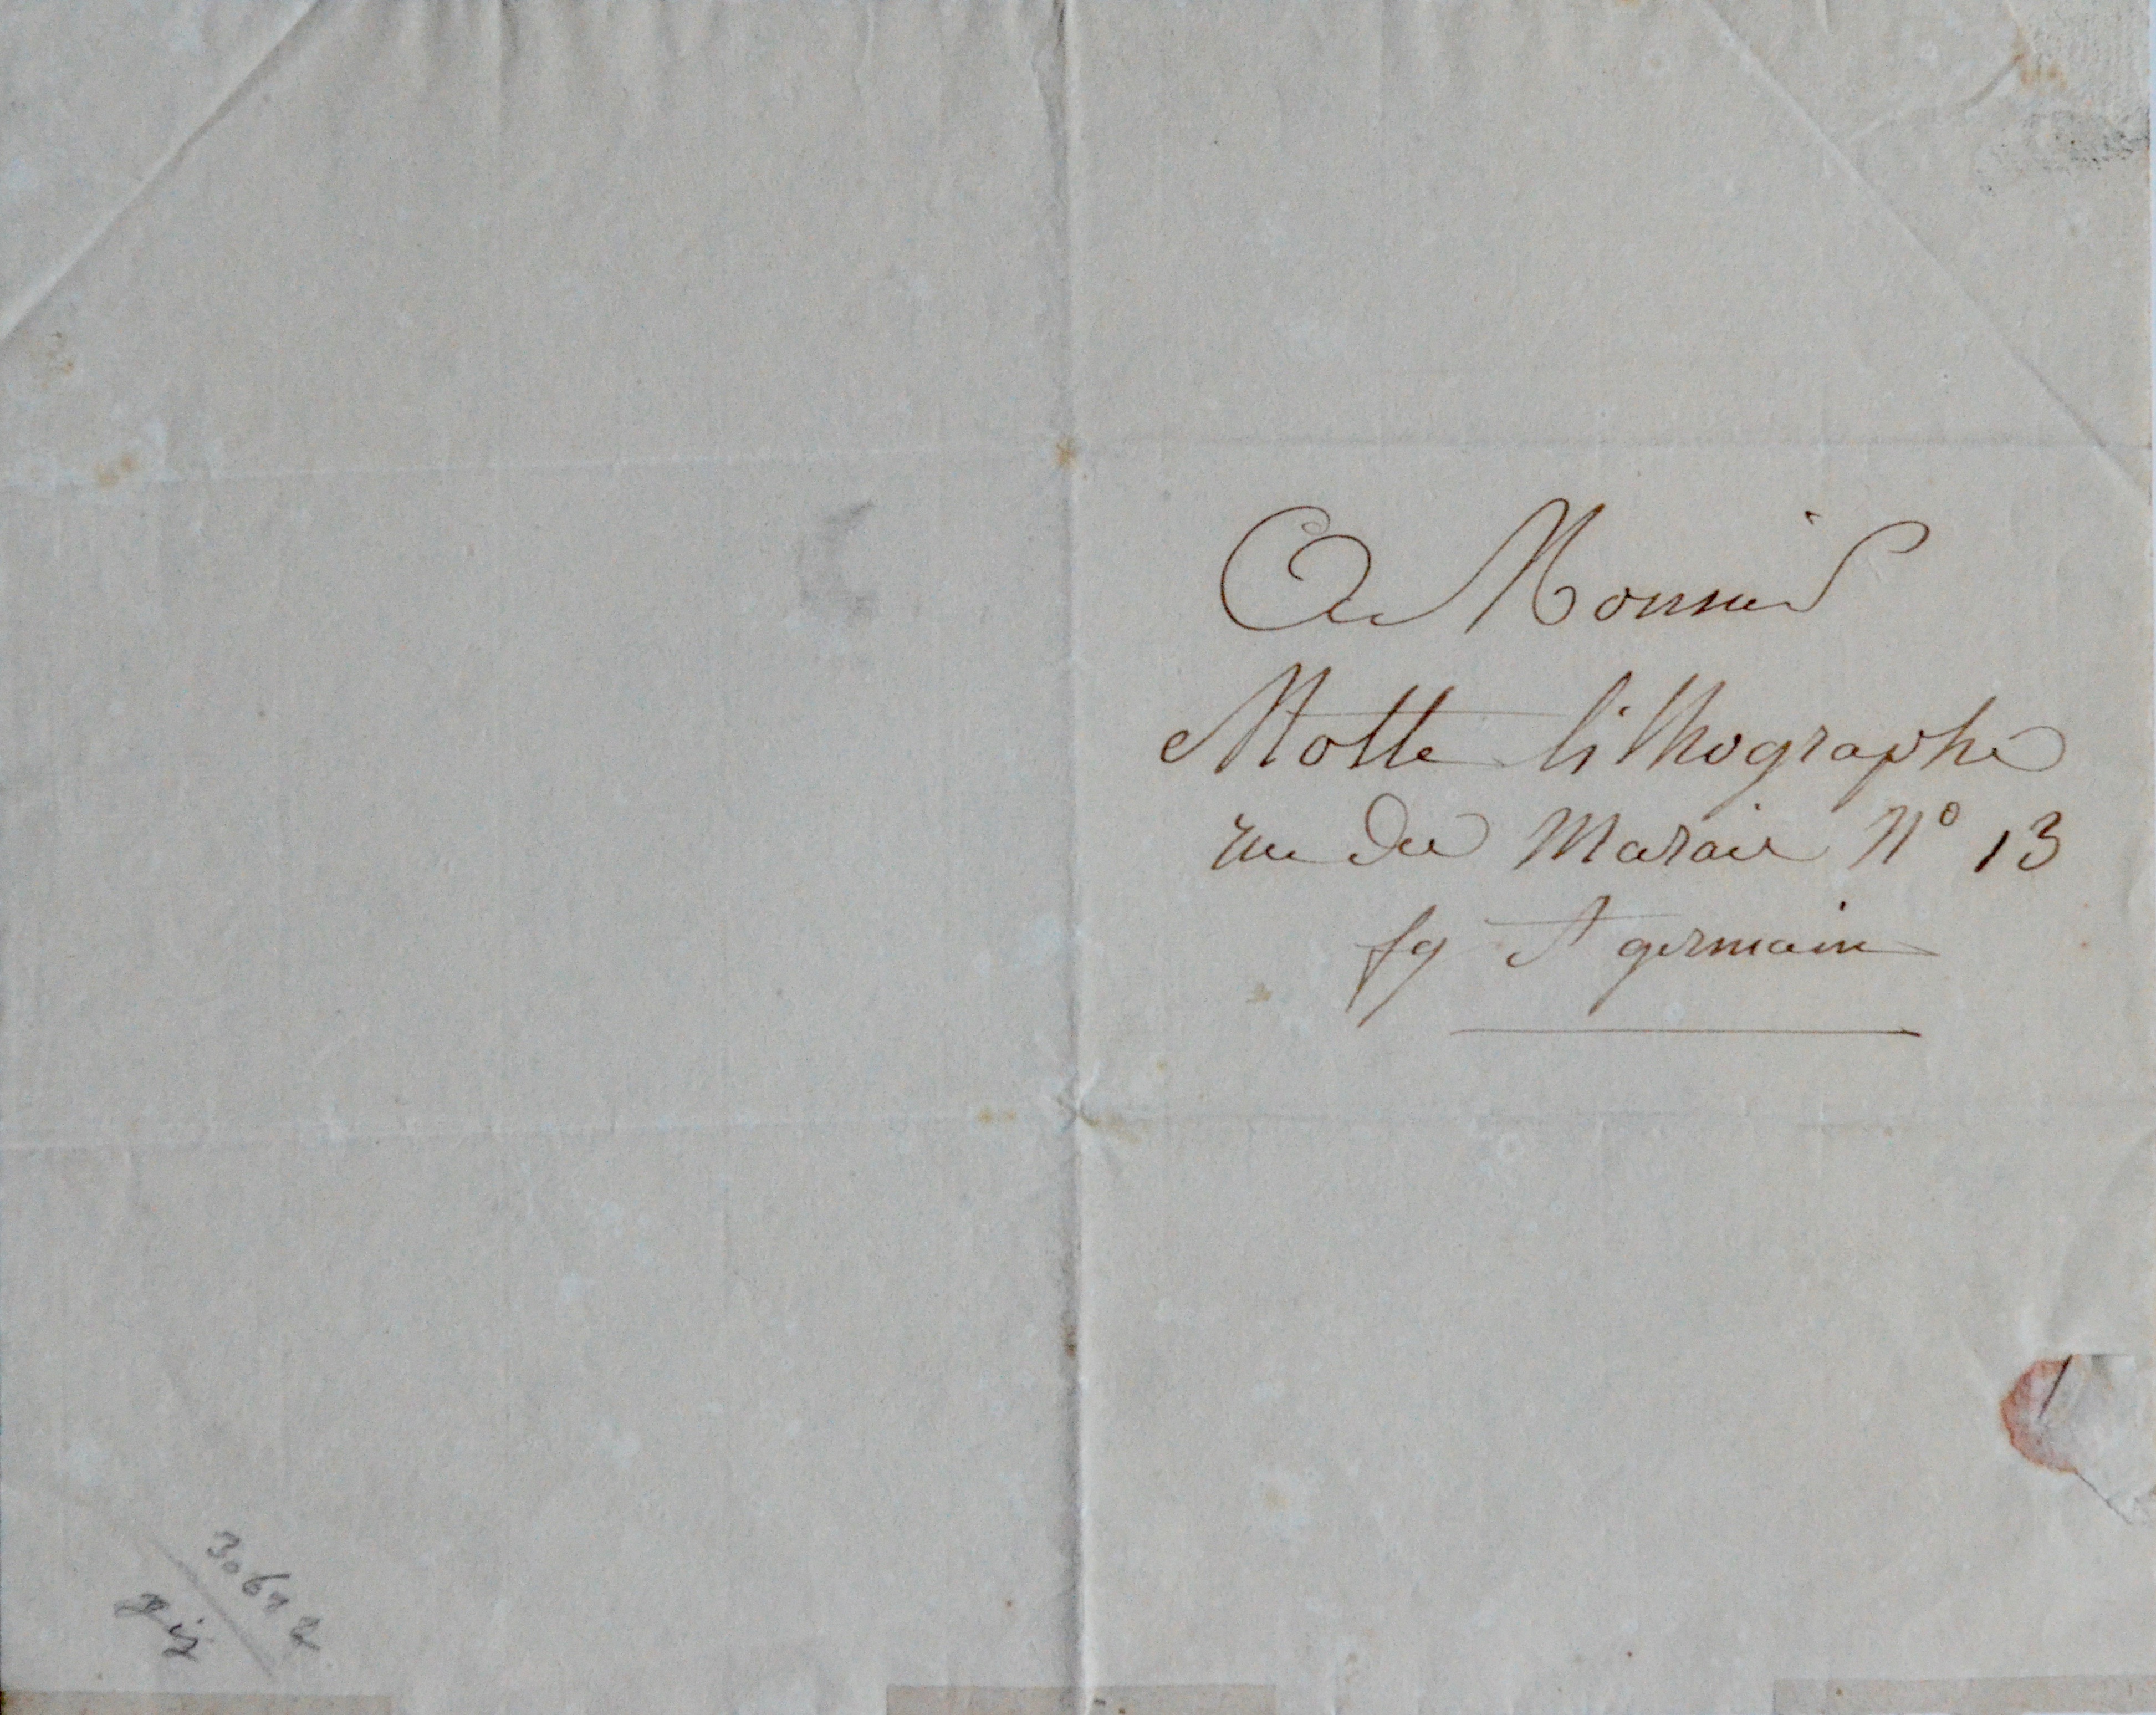 A Monsieur
Motte lithographe
rue des Marais N° 13
fg St germain